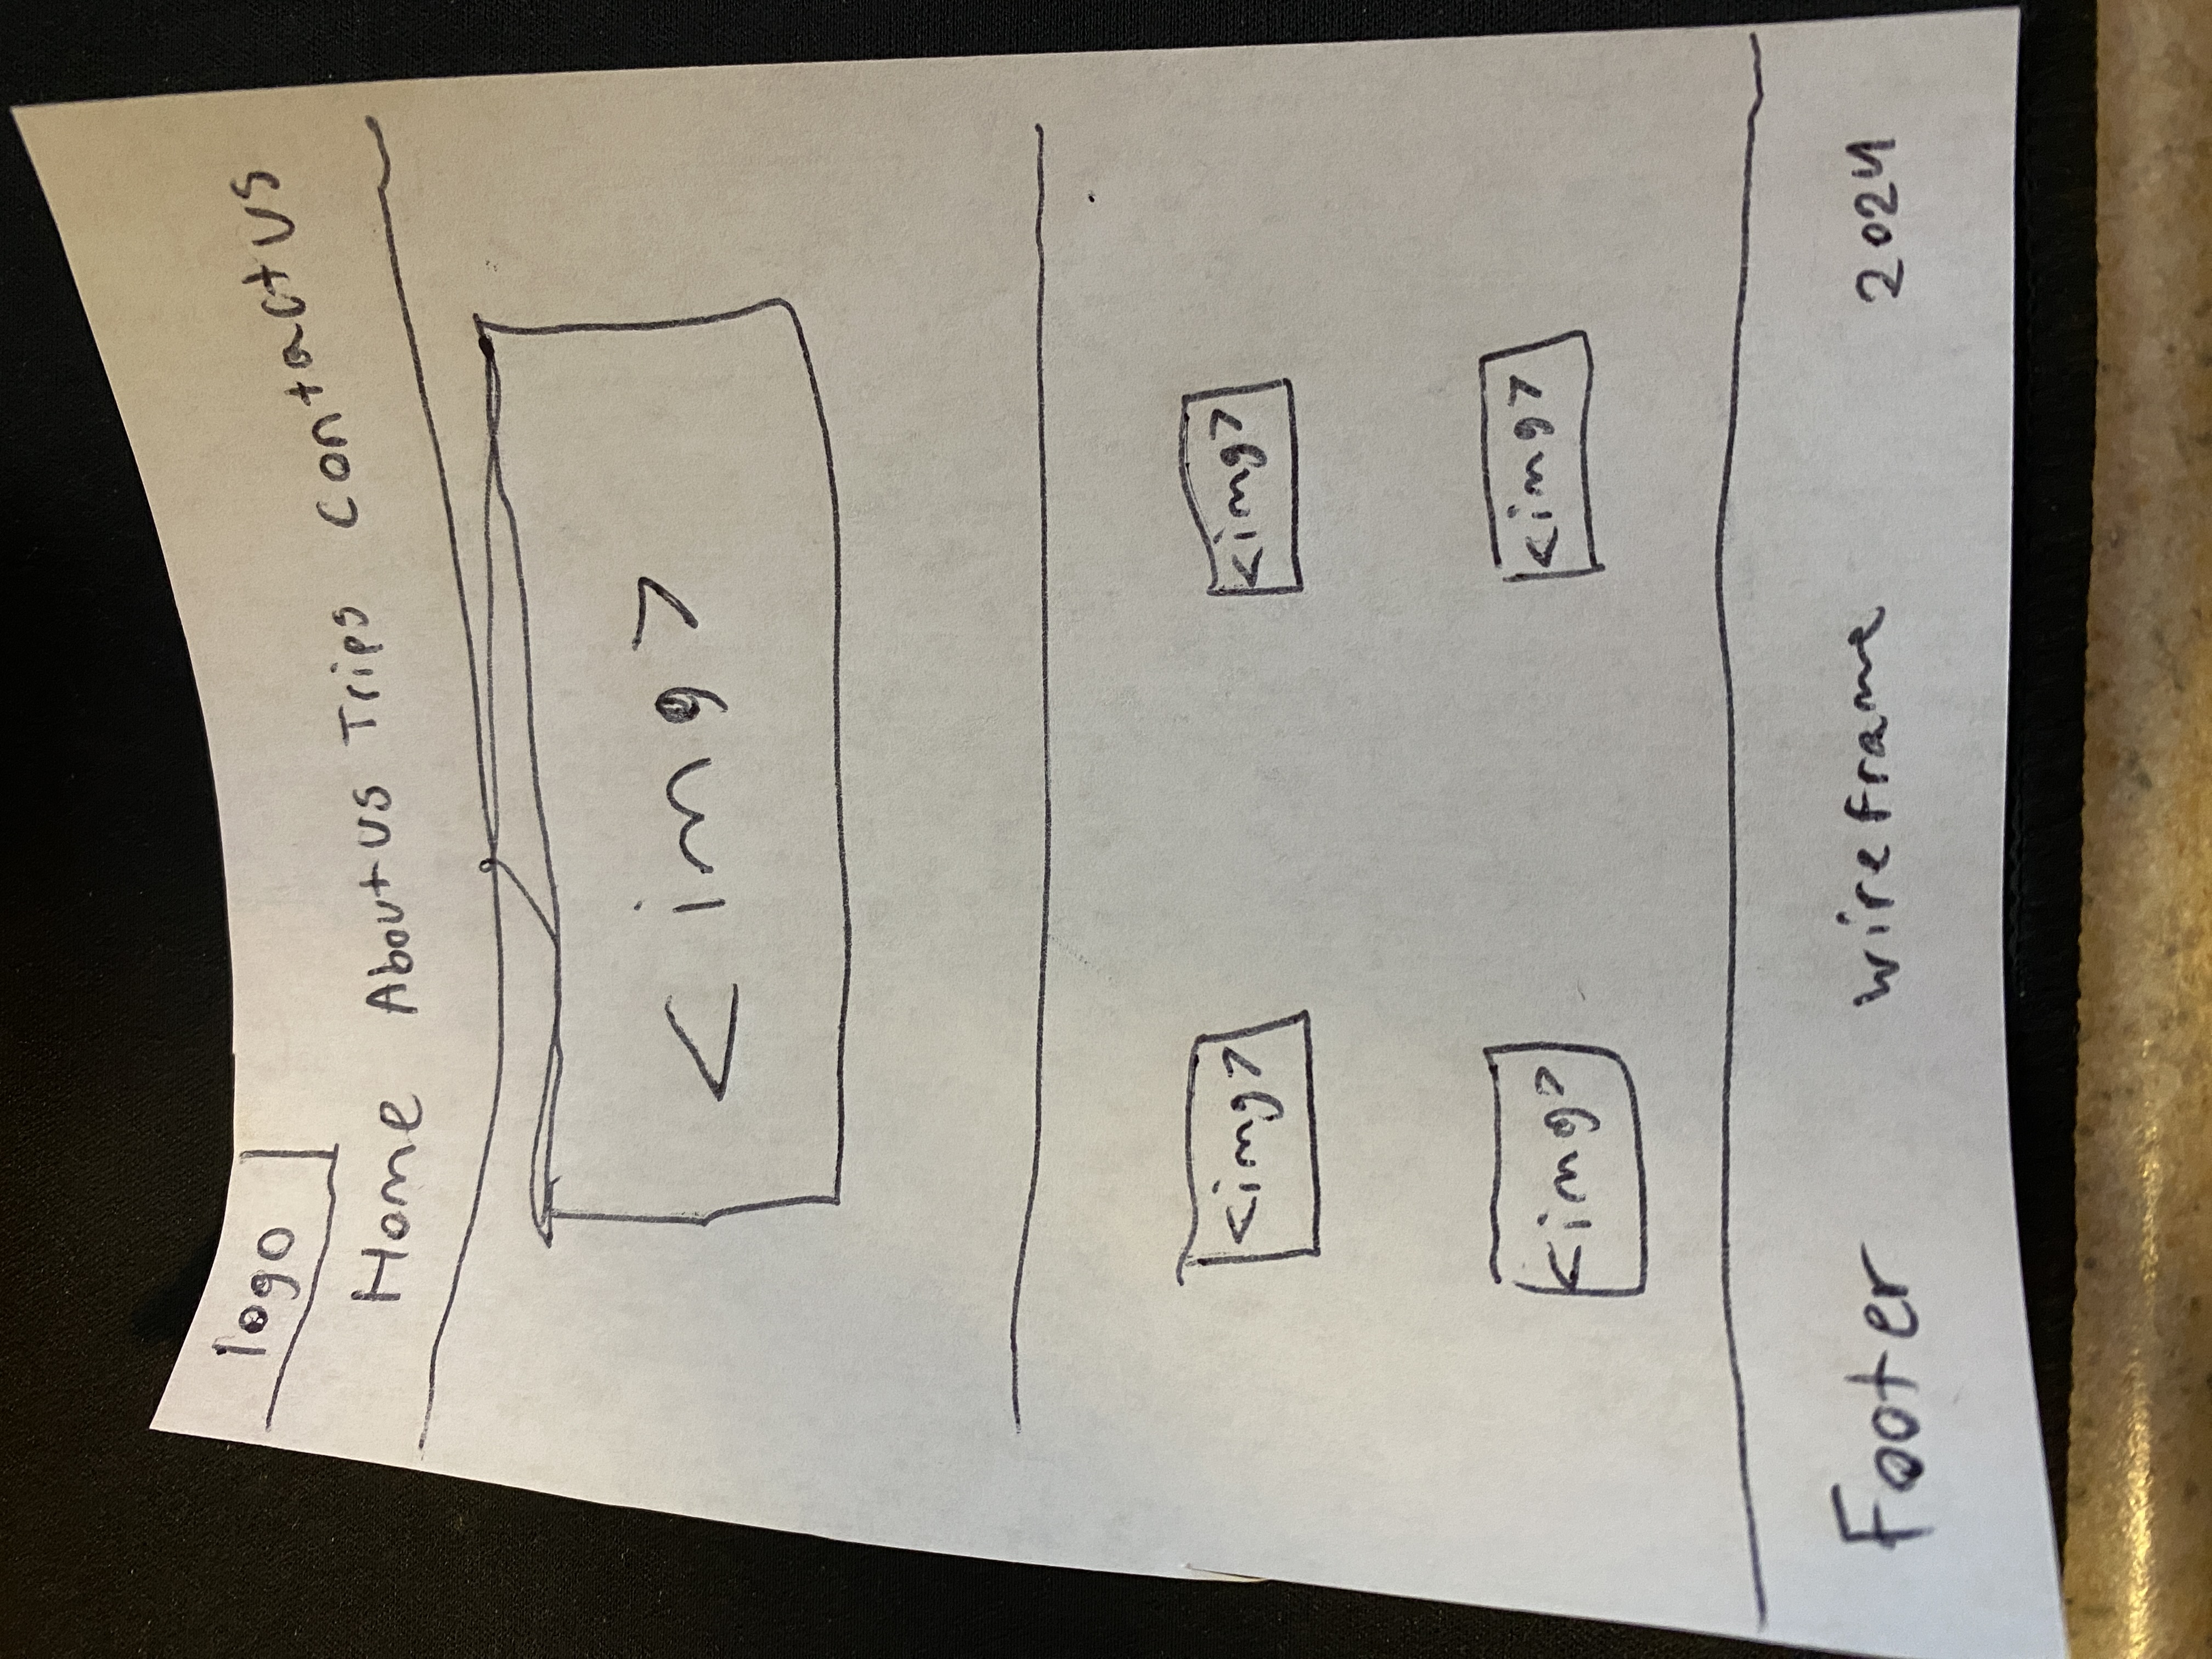 logo
Home About us Trips Contact us
<img>
<img> <img>
<img> <img>
Footer wireframe 2024